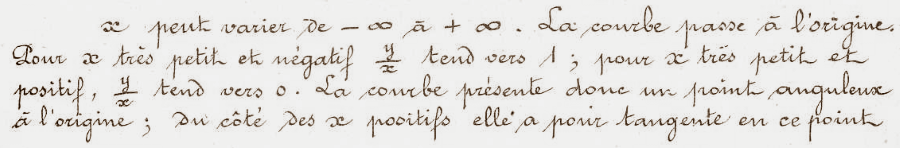 x peut varier de - ∞ à + ∞. La courbe passe à l'origine.
Pour x très petit et négatif y/x tend vers 1 ; pour x très petit et
positif, y/x tend vers 0. La courbe présente donc un point anguleux
à l'origine ; du côté des x positifs elle a pour tangente en ce point